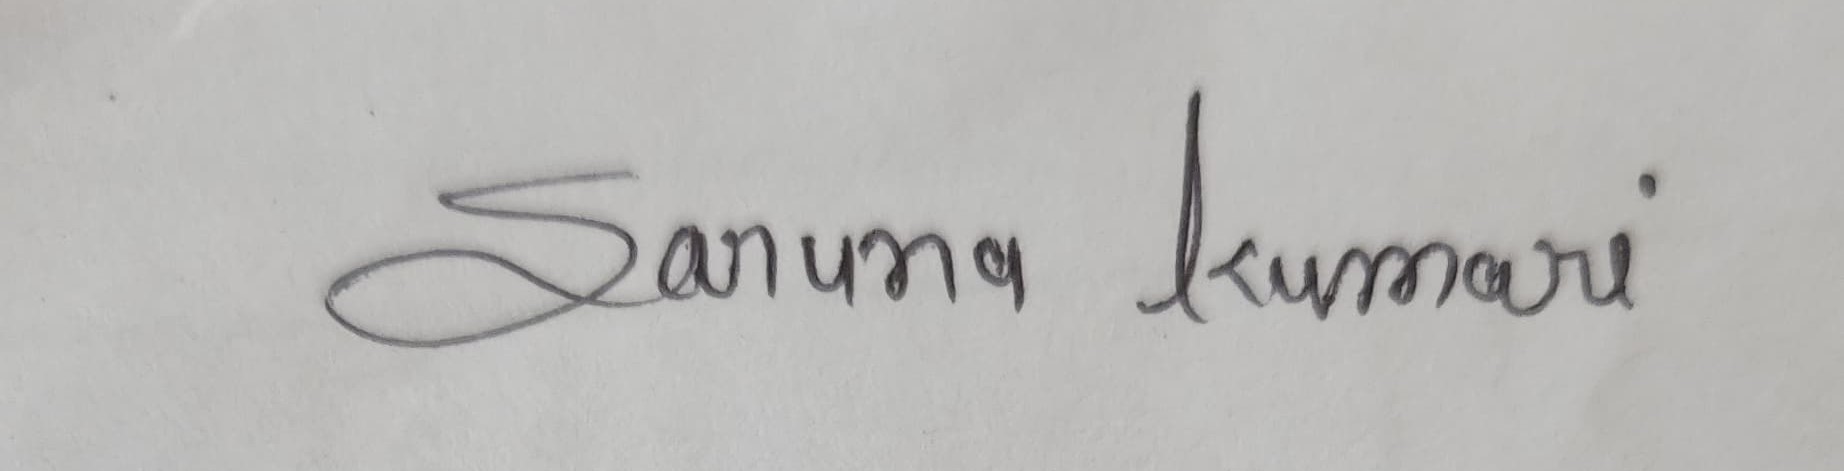 Saruna kumari